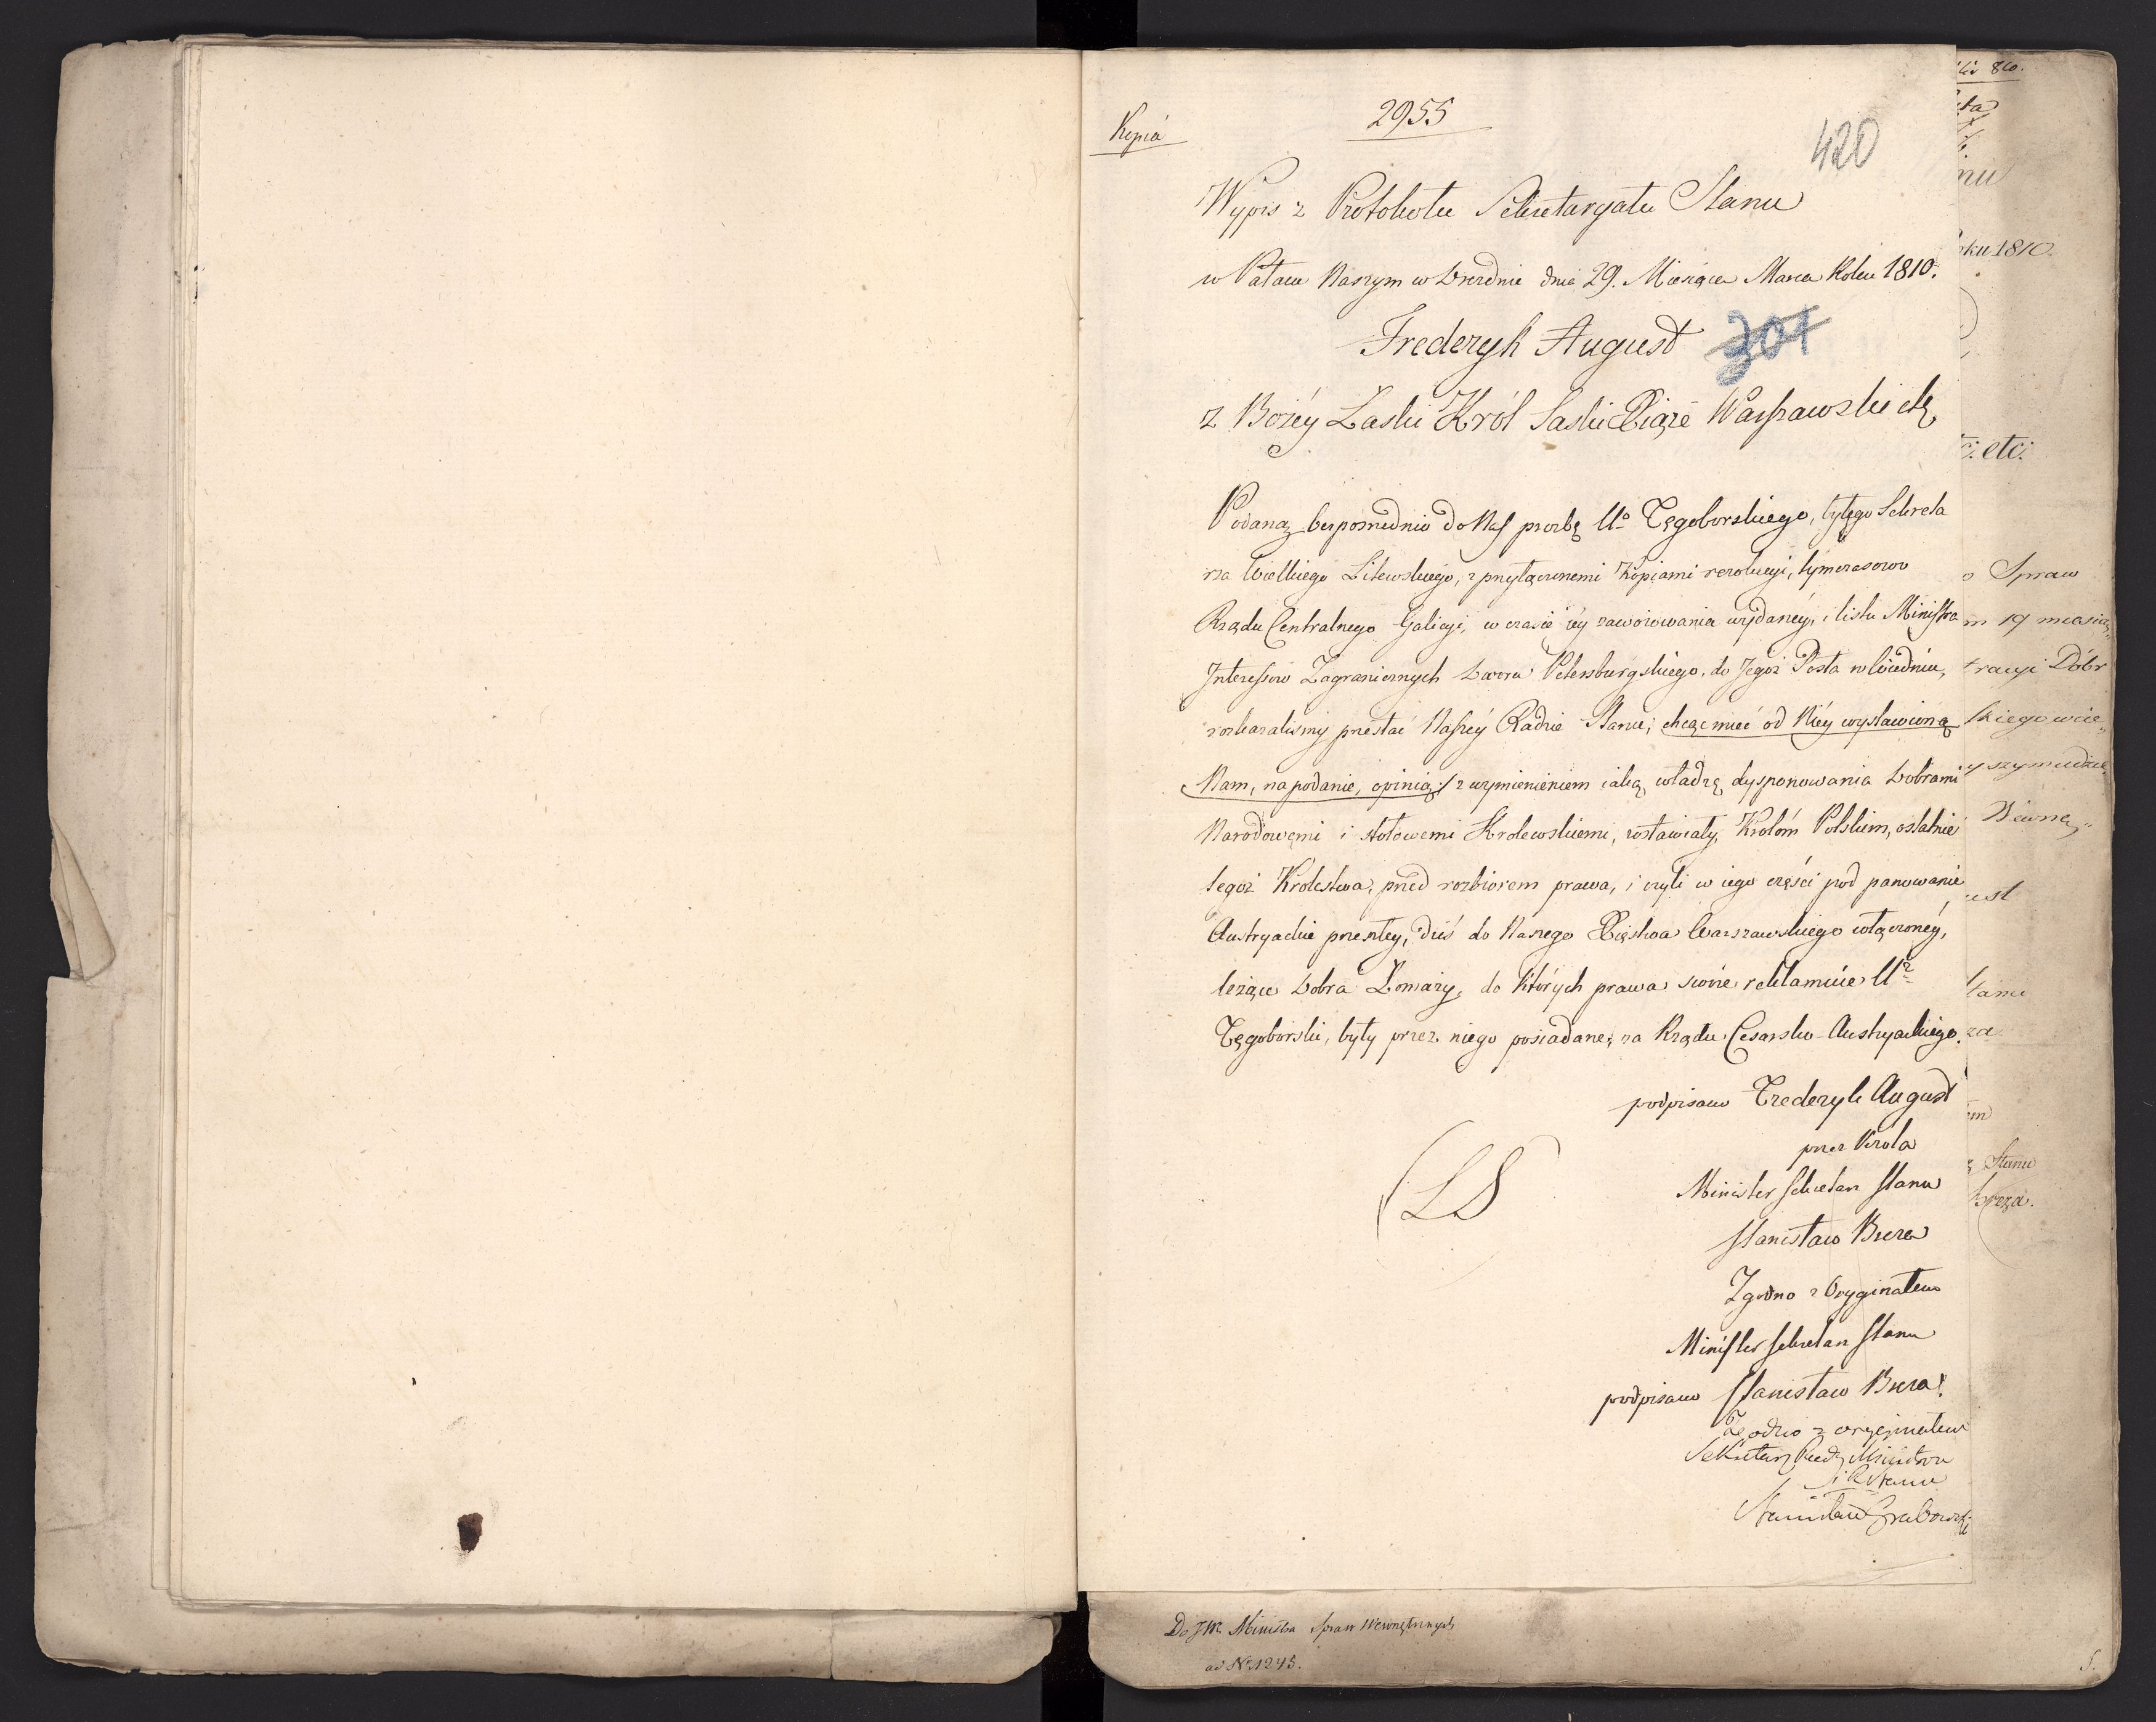 Kopia
2955
420
Wypis z Protokołu Sekretaryatu Stanu
w Pałacu Naszym w Dreźnie dnia 29. Miesiąca Marca Roku 1810.
Frederyk August
301
z Bożéy Łaski Król Saski Xiąże Warszawski etc
Podaną bezpośrednio do Nas prozbę Uo Tęgoborskiego, byłego Sekreta
rza Wielkiego Litewskiego, z przyłączonemi Kopiami rezolucyi, tymczasowo
Rządu Centralnego Galicyi, w czasie iéy zawoiowania wydanéy, i listu Ministra
Interessów Zagranicznych Dworu Petersburgskiego, do Jegoż Posła w Wiedniu,
rozkazaliśmy przesłać Naszéy Radzie Stanu; chcąc mieć od Niéy wystawioną
Nam, na podanie, opinią, z wymienieniem iaką władzę dysponowania Dobrami
Narodowemi i stołowemi Krolewskiemi, zostawiały Krolóm Polskim, ostatnie
tegoż Królestwa, przed rozbiorem prawa, i czyli w iego części pod panowanie
Austryackie przeszłey, dziś do Naszego Xięstwa Warszawskiego włączonéy,
leżące Dobra Łomazy, do których prawa swóie reklamuie Ur
Tęgoborski, były przez niego posiadane, za Rządu Cesarsko-Austryackiego.
podpisano Frederyk August
przez Krola
Minister Sekretarz Stanu
Stanisław Breza
(LS
Zgodno z Oryginałem
Minister Sekretarz Stanu
podpisano Stanisław Breza
Zgodno z oryginałem
Sekretarz Rady Ministrów
i R. Stanu
Stanisław Grabowski
Do JW. Ministra Spraw Wewnętrznych
ad Nr 1245.
ku 1810.
etc:
Spraw
m 19 miesią„
tracyi Dóbr
skiego wie„
Stanu
Breza.